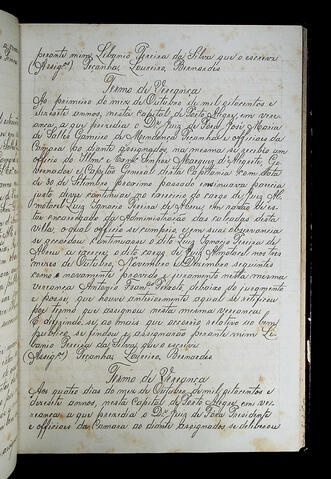 perante mim Libanio Pereira da Silva que o escrevi
(Assig.) Peçanha, Loureiro, Bernardes
Termo de Vereança
Ao primeiro do mez de Outubro de mil oitocentos e
dezesete annos, nesta capital de Porto Alegre, em ver
eança, a que prezidio o Dr. Juiz de Fora José Maria
de Salles Gameiro de Mendonça Peçanha, e officiaes da
Camara ao diante assignados, na mesma se recebio um
officio do Illmo. e Exmo. Snr. Marquez d'Alegrete, Go
vernador e Capitão General desta Capitania com data
de 30 de Setembro proximo passado insinuava parecia
justo deve continuar no exercicio do cargo de Juiz Al
motacel Luiz Ignacio Pereira de Abreu, em razão de es
tar encarregado da Administração das calçadas desta
villa, o qual officio se cumprio, e em sua observancia
se accordou continuasse o dito Luiz Ignacio Pereira de
Abreu a exercer o dito cargo de Juiz Almotacel nos tres
mezes de Outubro, Novembro e Dezembro seguintes
como novamente provido e juramento nesta mesma
vereança Antonio Peixoto debaixo do juramento
e posse, que houve anteriormente a qual se ratificou
por termo que assignou nesta mesma vereança.
E dizendo-se, se ao mais que occorreo relativo ao bem
publico, se findou e assignarão perante mim Li
banio Pereira da Silva, que o escrevi
(Assig.) Peçanha, Loureiro, Bernardes
Termo de Vereança
Aos quatro dias do mez de Outubro de mil oitocentos e
dezesete annos, nesta Capital de Porto Alegre em ve
reança a que prezidio o Dr. Juiz de Fora Prezidente
e officiaes da Camara ao diante assignados se deliberou